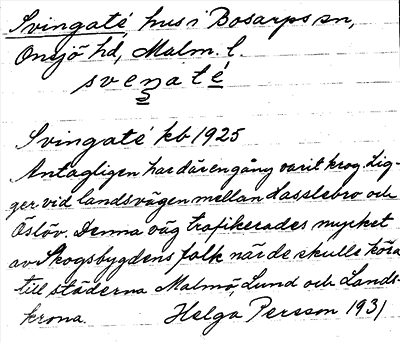 Svingaté, hus i Bosarps sn,
Onsjö hd, Malm. l.
svenaté
Svingaté kb 1925
Antagligen har där en gång varit krog. Lig-
ger vid landsvägen mellan Hasslebro och
Öslöv. Denna väg trafikerades mycket
av Skogsbygdens folk när de skulle köra
till städerna Malmö, Lund och Lands-
krona. Helga Persson 1931